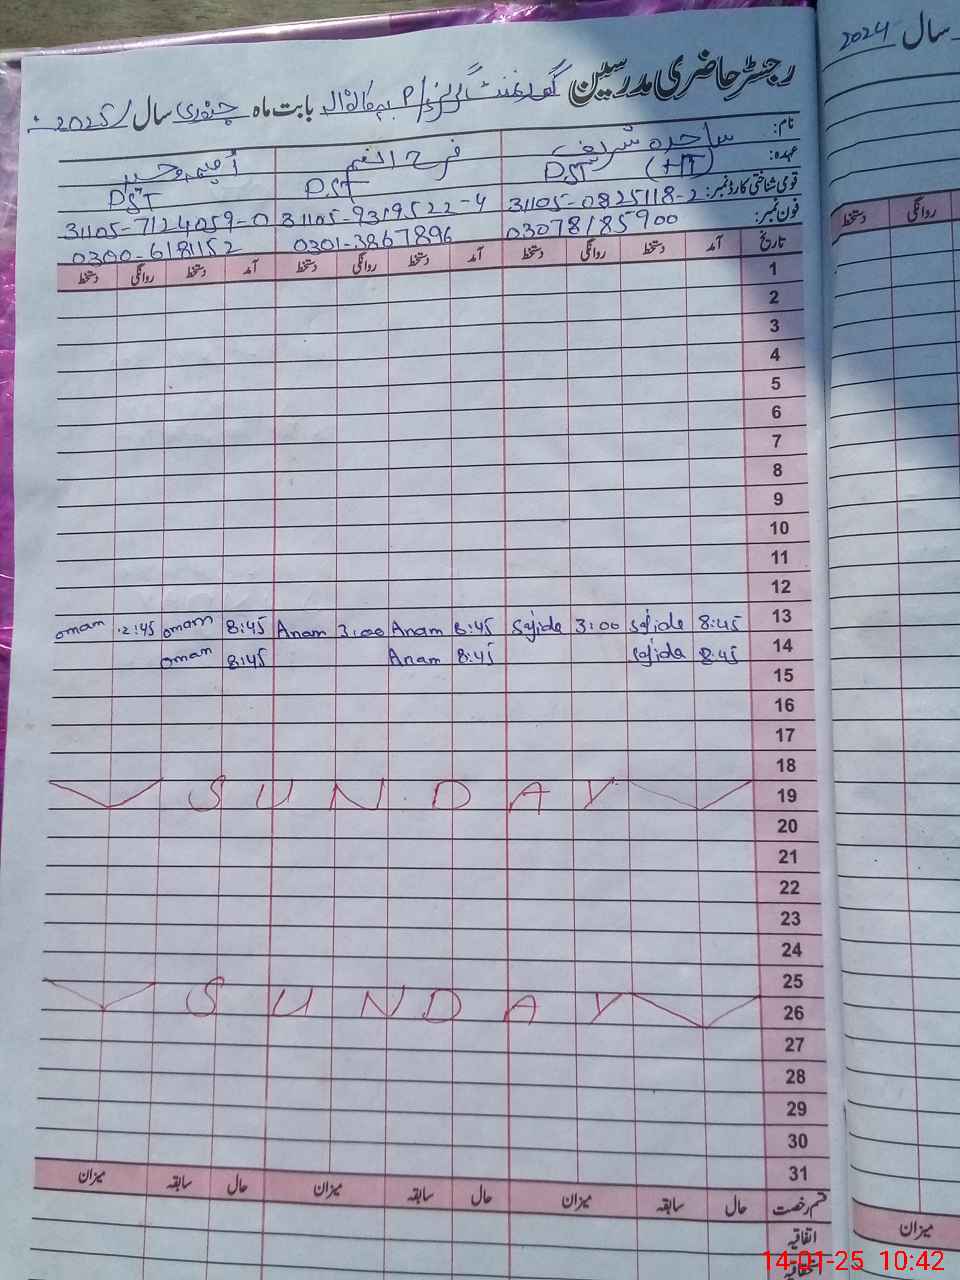 رجسٹر حاضری مدرسین گورنمنٹ گرلز P/ بابت ماہ جنوری سال 2025ء
نام: ساجدہ شریف فرح انعم
عہدہ: PST (HT) PST PST
قومی شناختی کارڈ نمبر: 31105-0825118-2 31105-9319522-4 31105-7124059-0
فون نمبر: 03078185900 0301-3867896 0300-6181152
تاریخ آمد دستخط روانگی دستخط آمد دستخط روانگی دستخط آمد دستخط روانگی دستخط
1
2
3
4
5
6
7
8
9
10
11
12
13 8:45 Sajida 3:00 Sajida 8:45 Anam 3:00 Anam 8:45 omam 2:45 omam
14 8:45 Sajida 8:45 Anam 8:45 omam
15
16
17
18
19 SUNDAY
20
21
22
23
24
25
26 SUNDAY
27
28
29
30
31
قسم رخصت حال سابقہ میزان حال سابقہ میزان حال سابقہ میزان
اتفاقیہ
سال 2024
روانگی دستخط
میزان
14-01-25 10:42